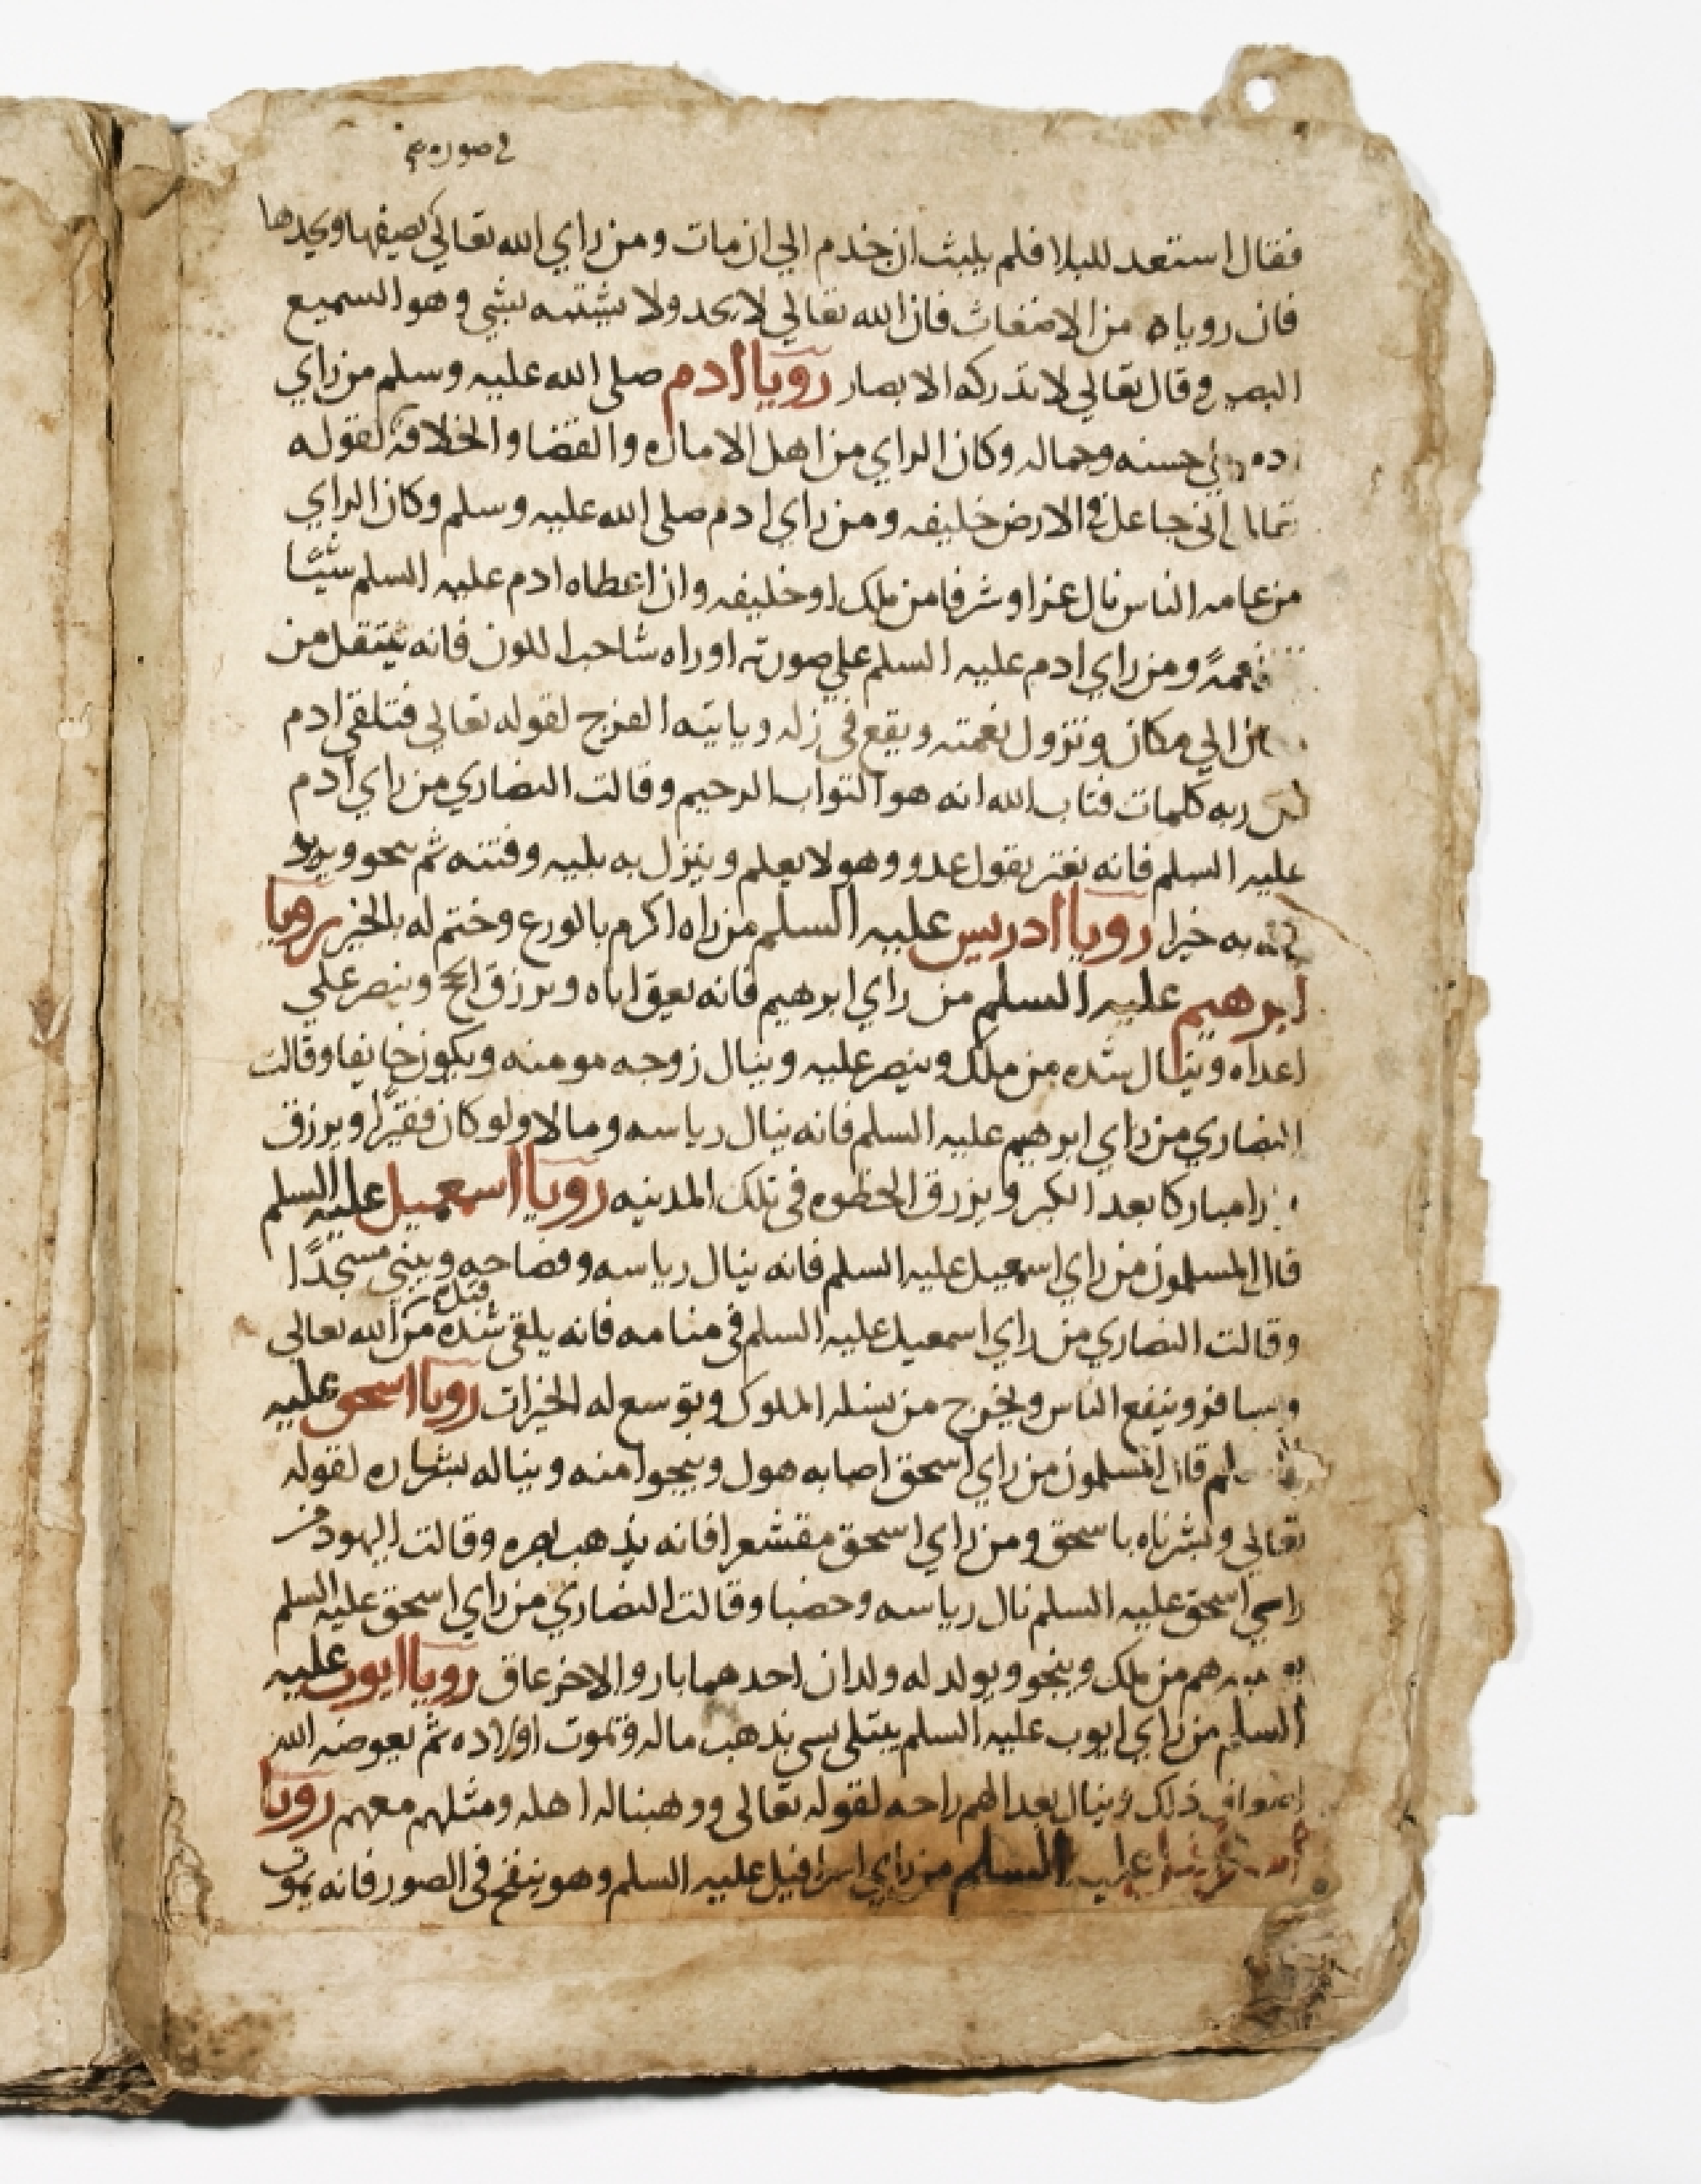 في صوره
فقال استعد للبلا فلم يلبث ان خدم الي ان مات ومن راي الله تعالي يصفها ويحدها
فان روياه من الاضغاث فان الله تعالي لا يحد ولا يشتبه بشي وهو السميع
البصير وقال تعالي لا تدركه الابصار رويا ادم صلي الله عليه وسلم من راي
ادم في حسنه وجماله وكان الراي من اهل الاماره والقضا والخلافة لقوله
اني جاعل في الارض خليفه ومن راي ادم صلي الله عليه وسلم وكان الراي
من عامه الناس نال عزا وشرفا من ملك او خليفه وان اعطاه ادم عليه السلم شيًا
ومن راي ادم عليه السلم علي صورته او راه شاحب اللون فانه ينتقل من
الي مكان وتزول نعمته ويقع في زله وياتيه الفرج لقوله تعالي فتلقي ادم
من ربه كلمات فتاب الله انه هو التواب الرحيم وقالت النصاري من راي ادم
عليه السلم فانه يغتر بقول عدو وهو لا يعلم وينزل به بليه وفتنه ثم ينجو ويريد
به خيرا رويا ادريس عليه السلم من راه اكرم بالورع وختم له بالخير رويا
ابرهيم عليه السلم من راي ابرهيم فانه يعق اباه ويرزق الحج وينصر علي
اعداه وينال شده من ملك وينصر عليه وينال زوجه مومنه ويكون خايفا وقالت
النصاري من راي ابرهيم عليه السلم فانه ينال رياسه ومالا ولو كان فقيرًا ويرزق
مباركا بعد الكبر ويرزق الحظوه في تلك المدينه رويا اسمعيل عليه السلم
قال المسلمون من راي اسمعيل عليه السلم فانه ينال رياسه وفصاحه ويبني مسجدًا
وقالت النصاري من راي اسمعيل عليه السلم في منامه فانه يلقي شده من الله تعالي
ويسافر وينفع الناس ويخرج من نسله الملوك وتوسع له الخيرات رويا اسحق عليه
السلم قال المسلمون من راي اسحق اصابه هول وينجوا منه ويناله بشاره لقوله
تعالي وبشرناه باسحق ومن راي اسحق مقشعرا فانه يذهب بصره وقالت اليهود من
راي اسحق عليه السلم نال رياسه وخصبا وقالت النصاري من راي اسحق عليه السلم
هم من ملك وينجو ويولد له ولدان احدهما بار والاخر عاق رويا ايوب عليه
السلم من راي ايوب عليه السلم يبتلي يذهب ماله وتموت اولاده ثم يعوضه الله
ذلك وينال بعد الهم راحه لقوله تعالي ووهبنا له اهله ومثلهم معهم رويا
السلم من راي اسرافيل عليه السلم وهو ينفخ في الصور فانه يموت